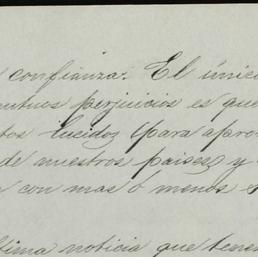 confianza. El únic
mutuos perjuicios es que
tos lucidos (para apro
de nuestros paises, y
con mas ó menos
tima noticia que tene